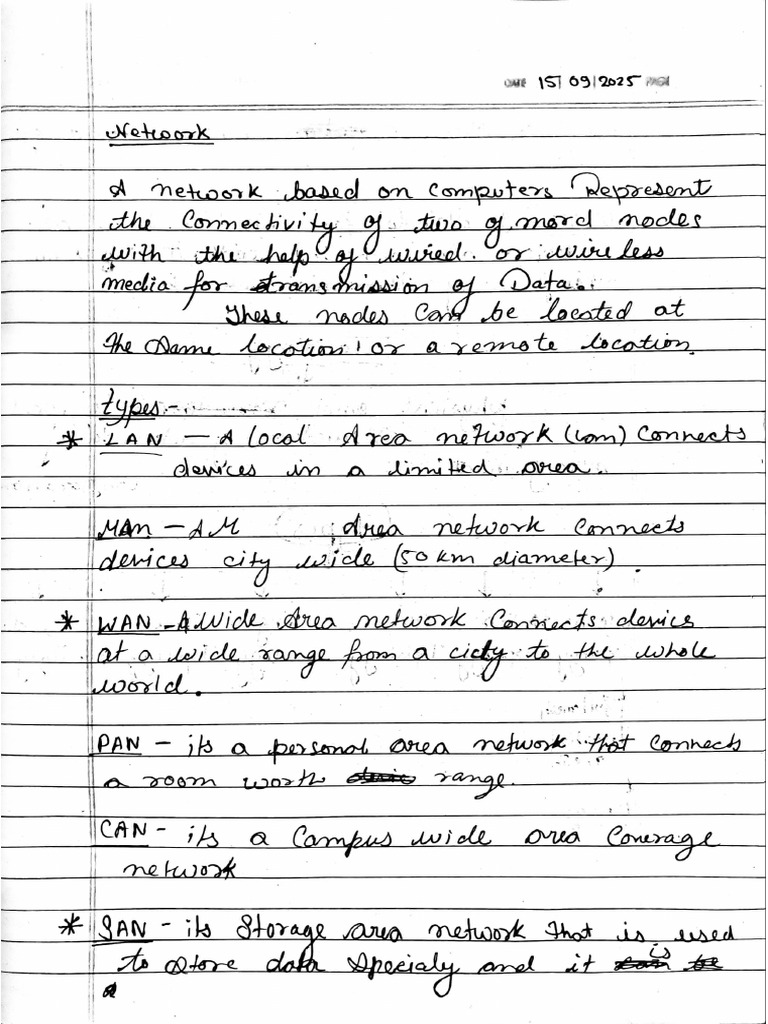 DATE 15/09/2025 PAGE
Network
A network based on computers Represent
the Connectivity of two of mord nodes
with the help of wired. or wireless
media for transmission of Data.
These nodes can be located at
the same location, or a remote location.
types -
* LAN — A local Area network (Lan) Connects
devices in a limited area.
MAn — A M Area network Connects
devices city wide (50 km diameter).
* WAN - A Wide Area network Connects device
at a wide range from a city to the whole
world.
PAN — its a personal area network that Connects
a room worth range.
CAN - its a Campus wide area Coverage
network
* SAN - its Storage area network that is used
to store data specialy and it is